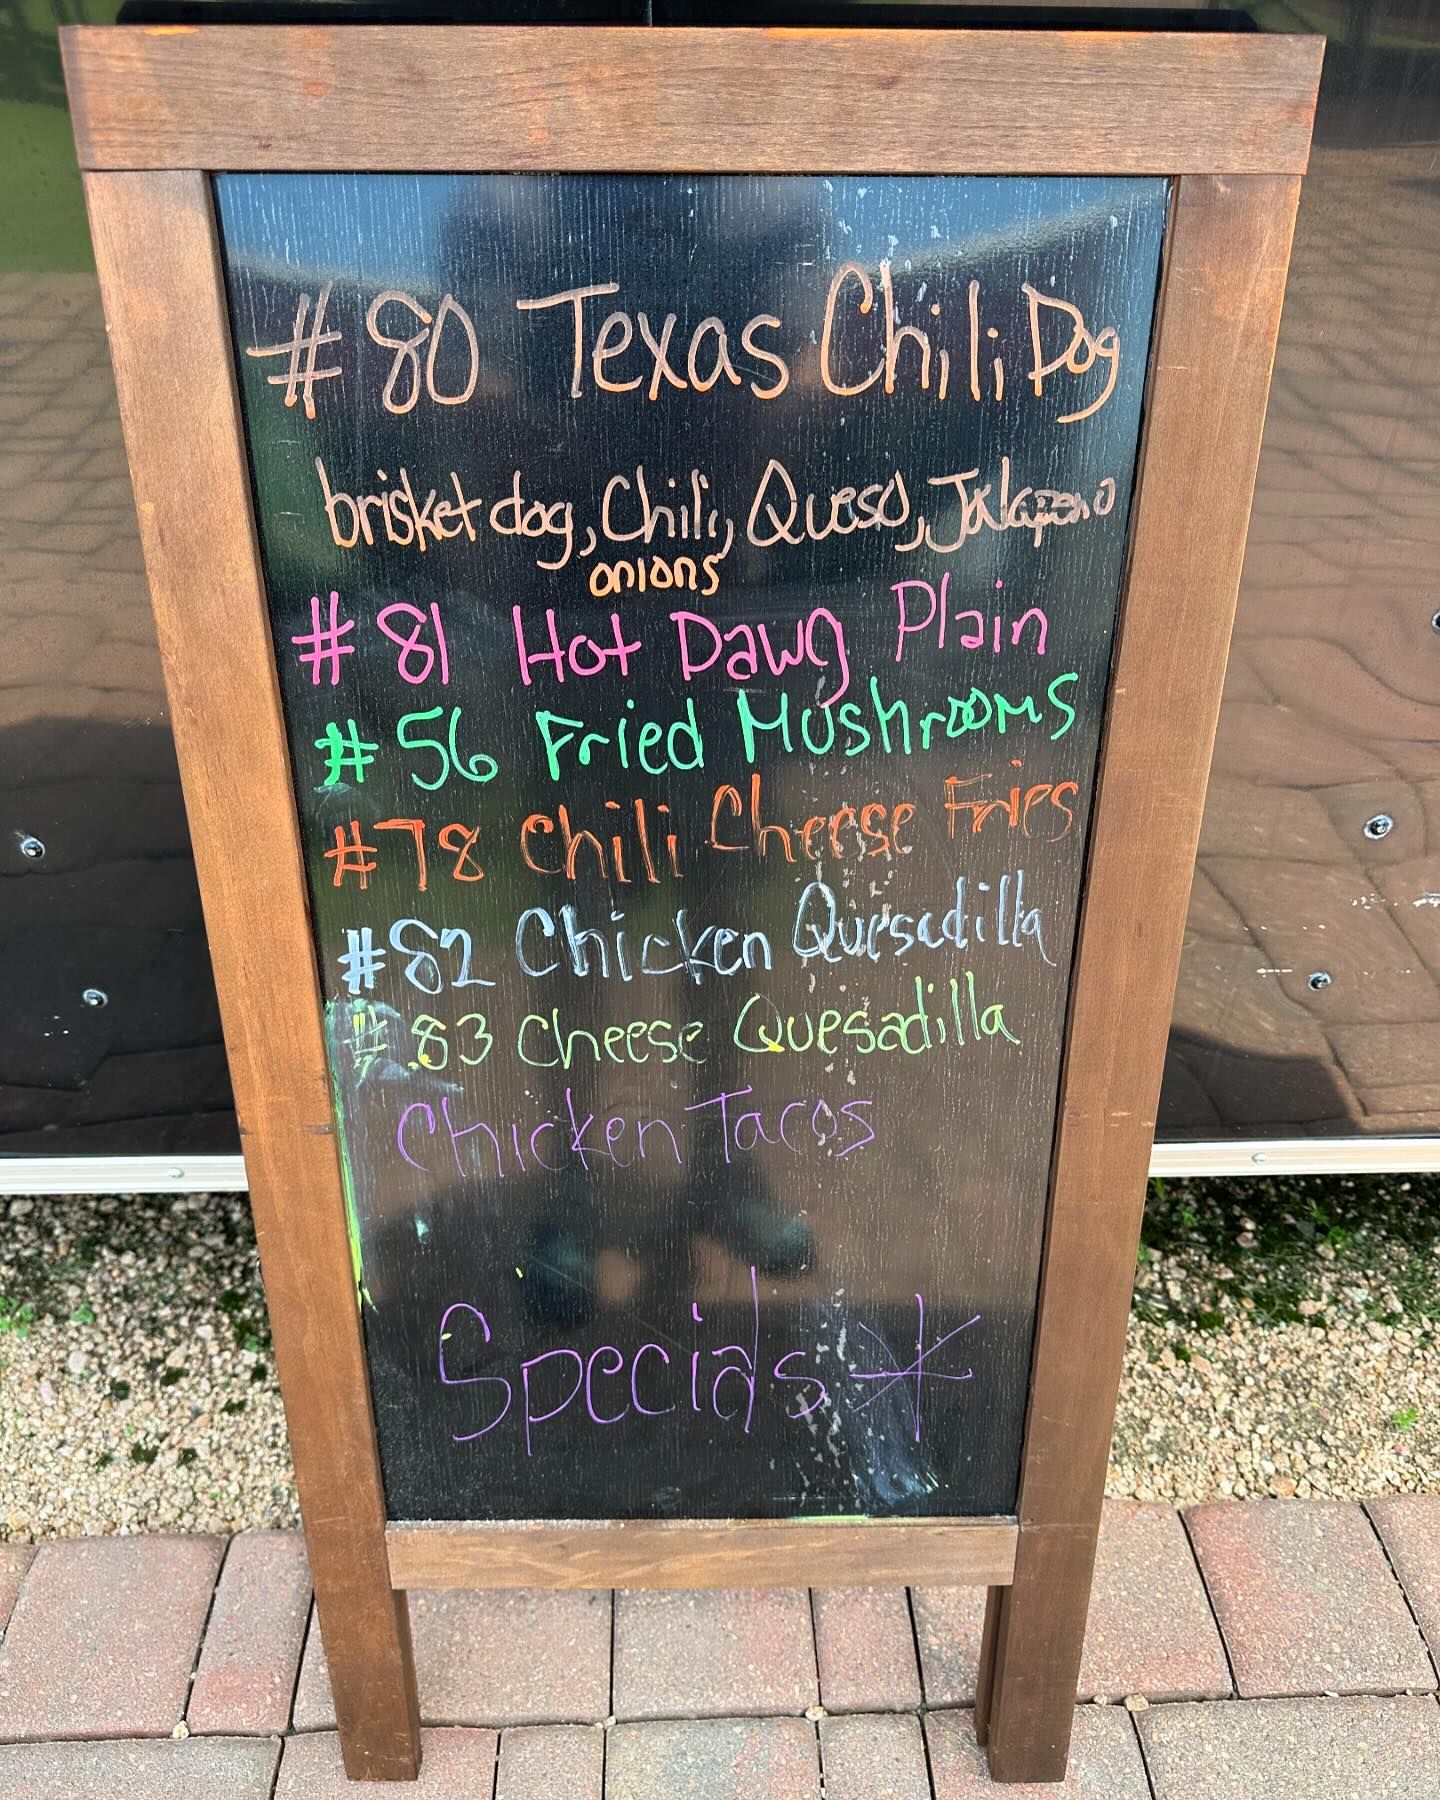 #80 Texas Chili Dog
brisket dog, Chili, Queso, Jalapeno
onions
#81 Hot Dawg Plain
#56 Fried Mushrooms
#78 Chili Cheese Fries
#82 Chicken Quesadilla
#83 Cheese Quesadilla
Chicken Tacos
Specials*